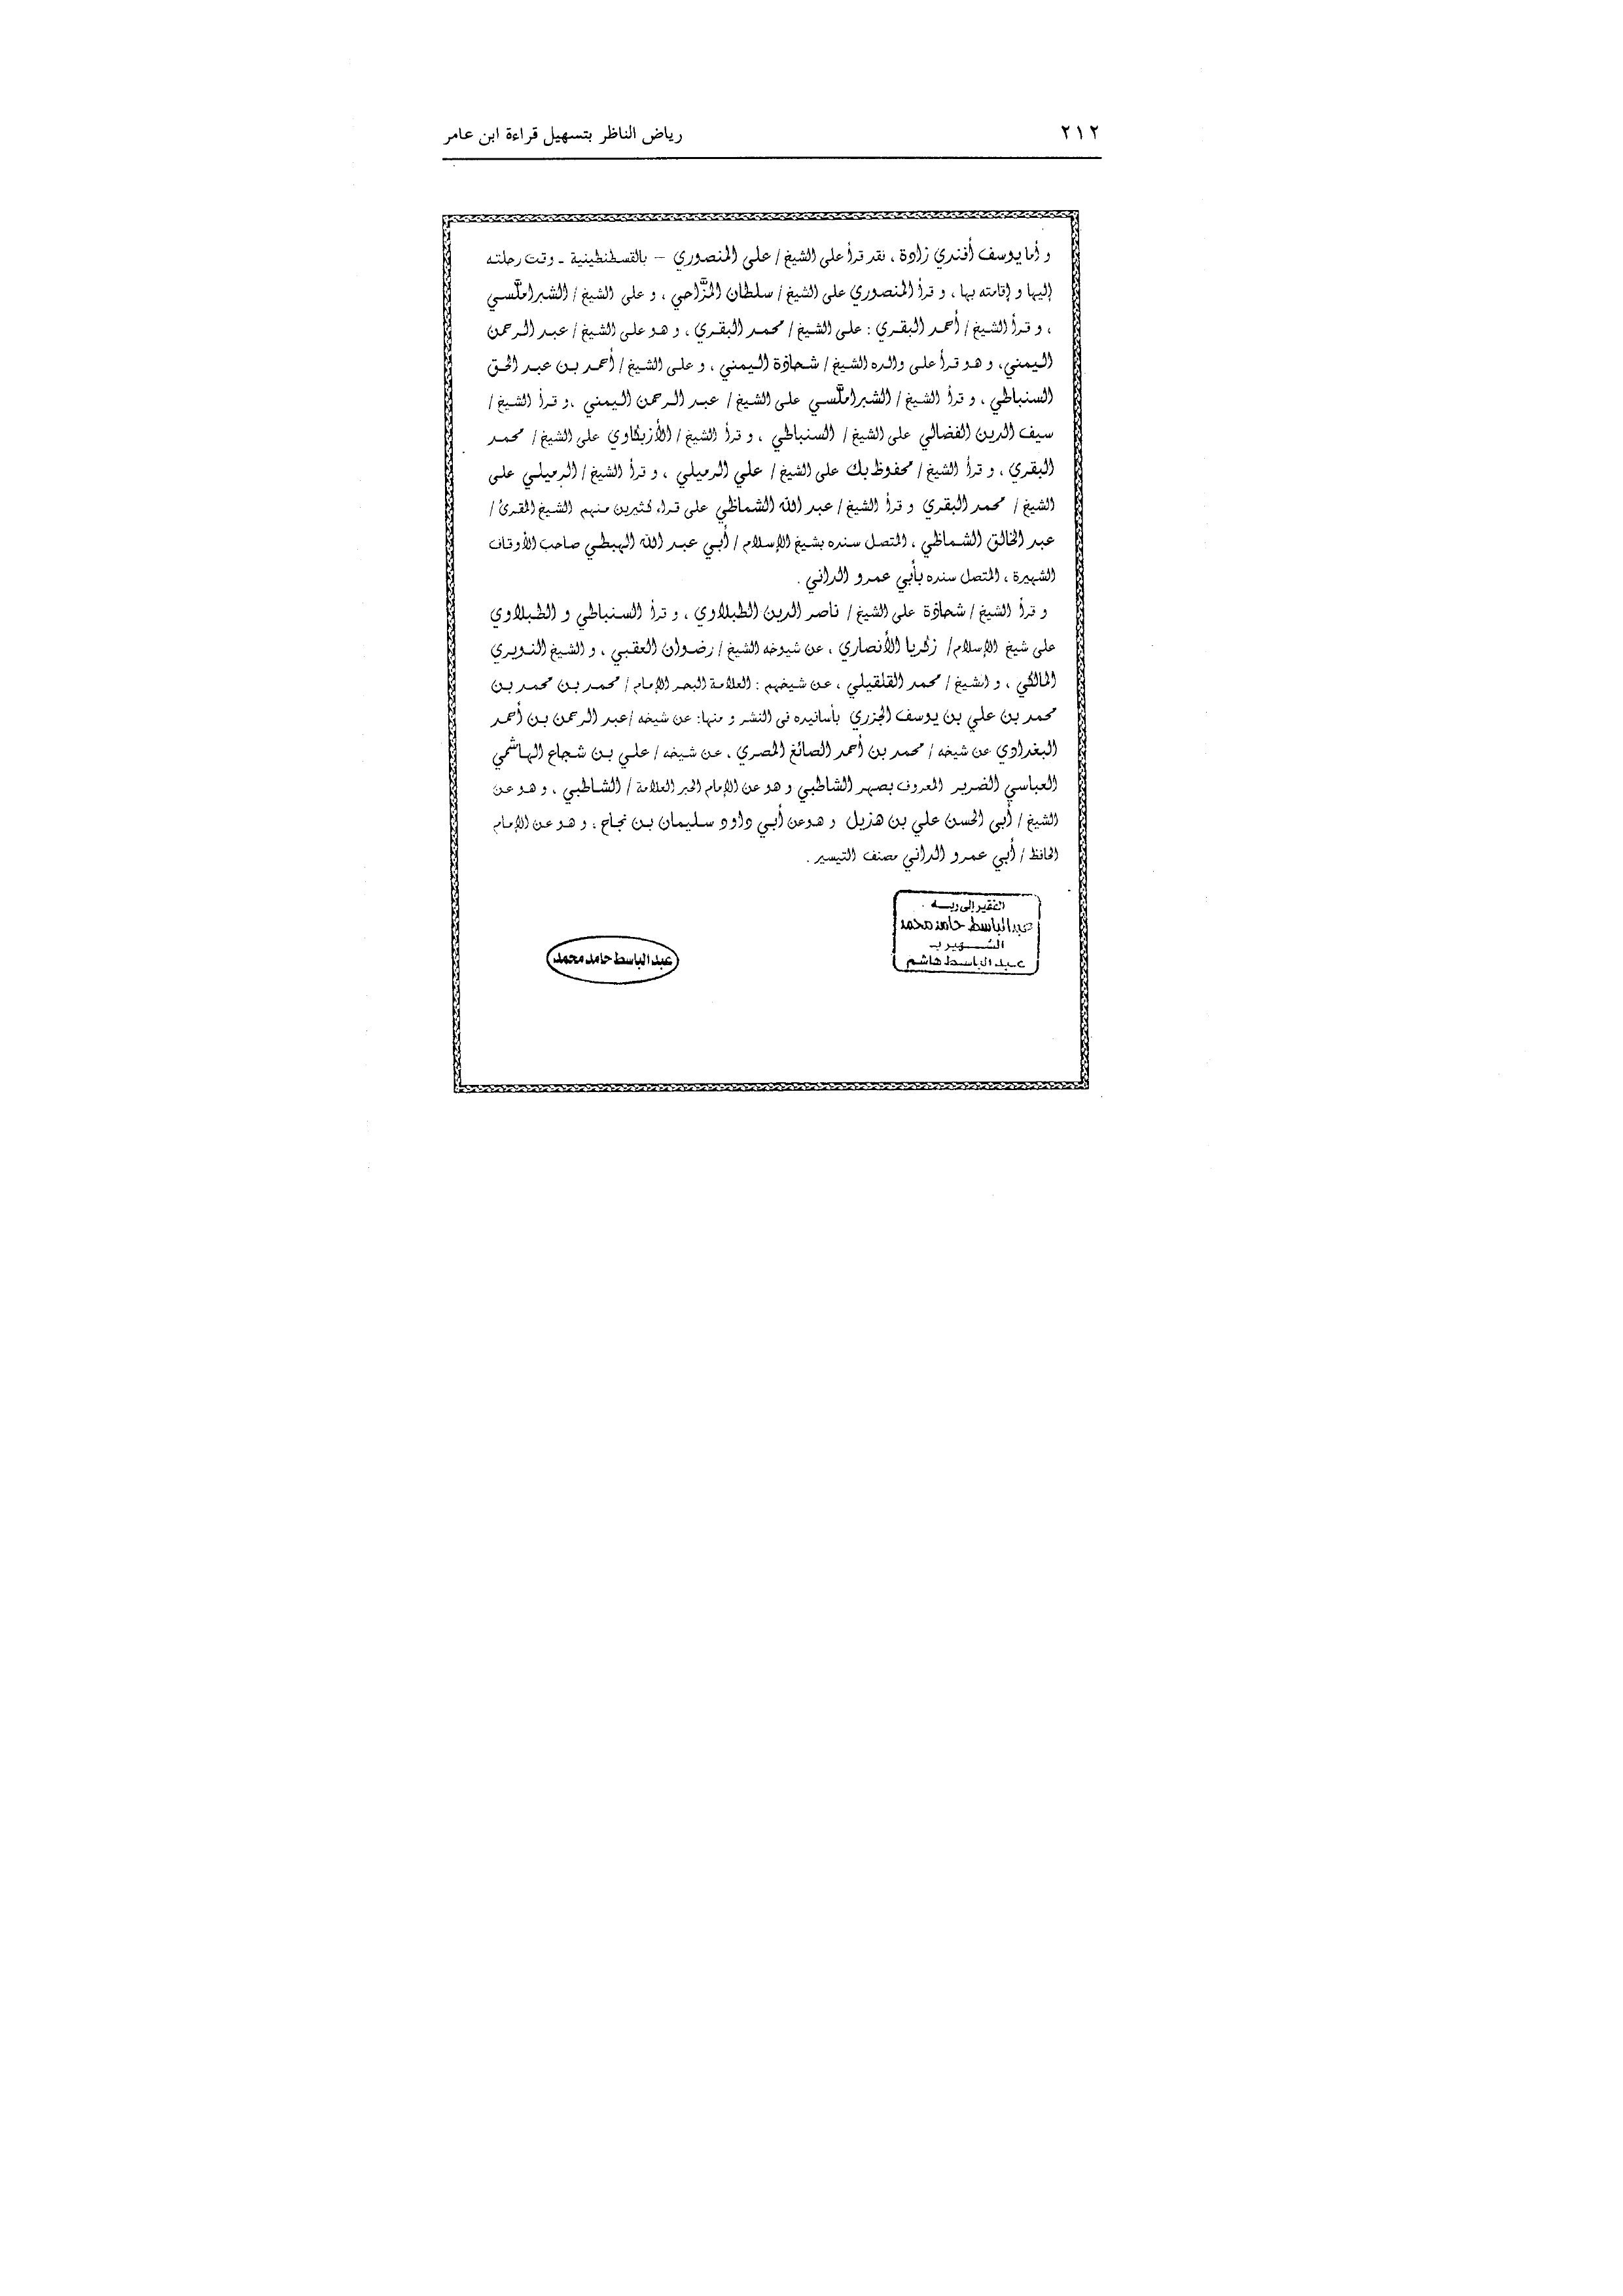 ٢١٢ رياض الناظر بتسهيل قراءة ابن عامر
و أما يوسف أفندي زادة ، فقد قرأ على الشيخ / على المنصوري – بالقسطنطينية ـ وقت رحلته
إليها و إقامته بها ، و قرأ المنصوري على الشيخ / سلطان المزَّاحي ، و على الشيخ / الشبراملّسي
، و قرأ الشيخ / أحمد البقري : على الشيخ / محمد البقري ، و هو على الشيخ / عبد الرحمن
اليمني، و هو قرأ على والده الشيخ / شحاذة اليمني ، و على الشيخ / أحمد بن عبد الحق
السنباطي ، و قرأ الشيخ / الشبراملّسي على الشيخ / عبد الرحمن اليمني ، و قرأ الشيخ /
سيف الدين الفضالي على الشيخ / السنباطي ، و قرأ الشيخ / الأزبكاوي على الشيخ / محمد
البقري ، و قرأ الشيخ / محفوظ بك على الشيخ / علي الرميلي ، و قرأ الشيخ / الرميلي على
الشيخ / محمد البقري و قرأ الشيخ / عبد الله الشماظي على قراء كثيرين منهم الشيخ المقرئ /
عبد الخالق الشماظي ، المتصل سنده بشيخ الإسلام / أبي عبد الله الهبطي صاحب الأوقاف
الشهيرة ، المتصل سنده بأبي عمرو الداني .
و قرأ الشيخ / شحاذة على الشيخ / ناصر الدين الطبلاوي ، و قرأ السنباطي و الطبلاوي
على شيخ الإسلام / زكريا الأنصاري ، عن شيوخه الشيخ / رضوان العقبي ، و الشيخ النويري
المالكي ، و الشيخ / محمد القلقيلي ، عن شيخهم : العلامة البحر الإمام / محمد بن محمد بن
محمد بن علي بن يوسف الجزري بأسانيده في النشر و منها: عن شيخه / عبد الرحمن بن أحمد
البغدادي عن شيخه / محمد بن أحمد الصائغ المصري ، عن شيخه / علي بن شجاع الهاشمي
العباسي الضرير المعروف بصهر الشاطبي و هو عن الإمام الحبر العلامة / الشاطبي ، و هو عن
الشيخ / أبى الحسن علي بن هذيل و هو عن أبي داود سليمان بن نجاح ، و هو عن الإمام
الحافظ / أبي عمرو الداني مصنف التيسير .
الفقير إلى ربه
عبد الباسط حامد محمد
الشهير بـ
عبد الباسط هاشم
عبد الباسط حامد محمد